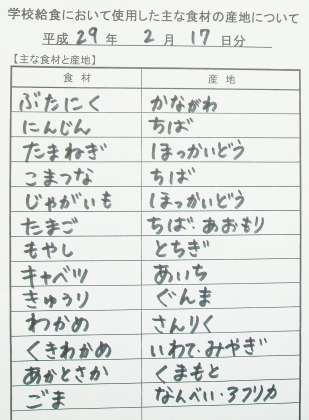 学校給食において使用した主な食材の産地について
平成 29 年 2 月 17 日分
【主な食材と産地】
食材 産地
ぶたにく かながわ
にんじん ちば
たまねぎ ほっかいどう
こまつな ちば
じゃがいも ほっかいどう
たまご ちば・あおもり
もやし とちぎ
キャベツ あいち
きゅうり ぐんま
わかめ さんりく
くきわかめ いわて・みやぎ
あかとさか くまもと
ごま なんべい・アフリカ